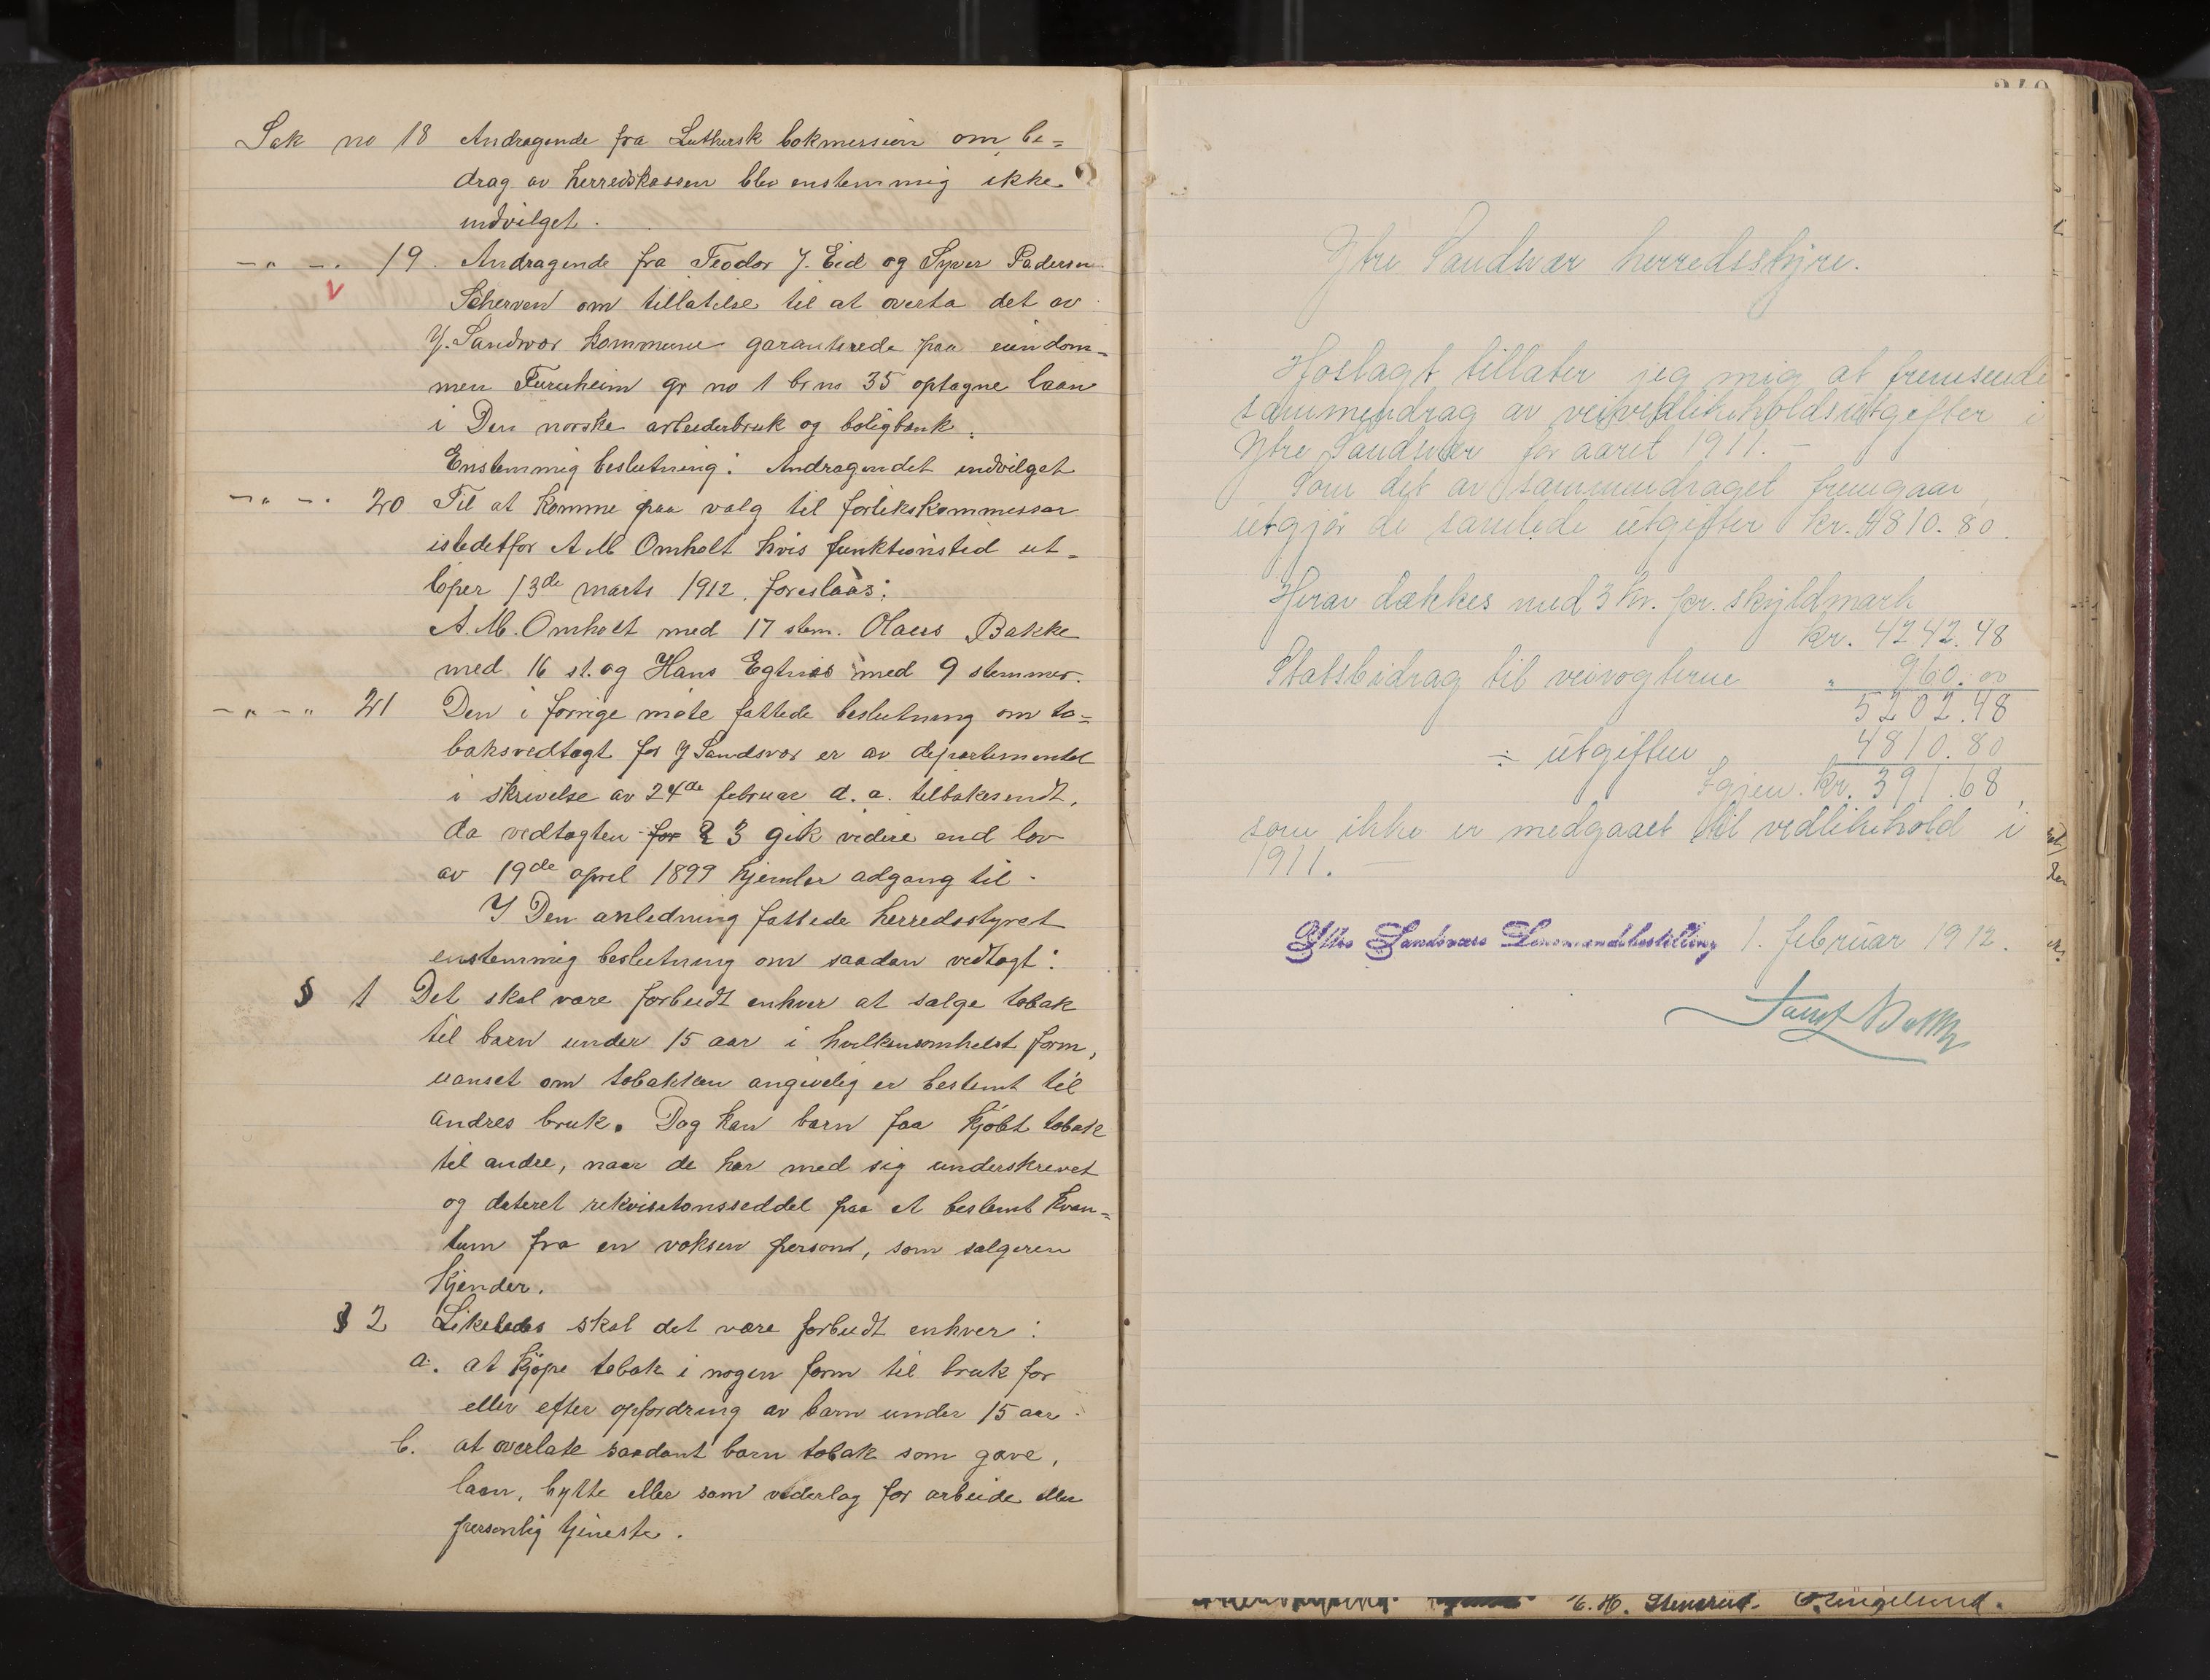 Sak no 18 Andragende fra Luthersk bokmession om be=
drag av herredskassen blev enstemmig ikke
indvilget.
-"- 19. Andragende fra Teodor J. Eid og Syver Pedersen
Scherven om tillatelse til at overta det av
Y. Sandsvær kommune garanterede paa eiendom=
men Furuheim gr no 1 br no 35 optagne laan
i Den norske arbeiderbruk og boligbank.
Enstemmig beslutning: Andragendet indvilget
-"- 20 Til at komme paa valg til forlikskommissær
istedetfor A M Omholt hvis funktionstid ut=
løper 13de marts 1912. foreslaas:
A. M. Omholt med 17 stem. Olaus Bakke
med 16 st. og Hans Egtnæs med 9 stemmer.
-"-" 21 Den i forrige møte fattede beslutning om to=
baksvedtægt for Y Sandsvær er av departementet
i skrivelse av 24de februar d. a. tilbakesendt,
da vedtægten for § 3 gik videre end lov
av 19de april 1899 hjemler adgang til.
I Den anledning fattede herredsstyret
enstemmig beslutning om saadan vedtægt:
§ 1 Det skal være forbudt enhver at sælge tobak
til barn under 15 aar i hvilkensomhelst form,
uanset om tobakken angivelig er bestemt til
andres bruk. Dog kan barn faa kjøbt tobak
til andre, naar de har med sig underskrevet
og dateret rekvisitonsseddel paa et bestemt kvan=
tum fra en voksen person, som sælgeren
kjender.
§ 2 Likeledes skal det være forbudt enhver:
a. at kjøpe tobak i nogen form til bruk for
eller efter opfordring av barn under 15 aar.
b. at overlate saadant barn tobak som gave,
laan, bytte eller som vederlag for arbeide eller
personlig tjeneste.
Ytre Sandsvær herredsstyre.
Hoslagt tillater jeg mig at fremsende
sammendrag av veivedlikeholdsutgifter i
Ytre Sandsvær for aaret 1911. —
Som det av sammendraget fremgaar
utgjør de samlede utgifter kr. 4810.80.
Herav dækkes med 3 kr. pr. skyldmark
kr. 4242.48
Statsbidrag til veivogterne " 960.00
5202.48
÷ utgiften " 4810.80
Igjen kr. 391.68,
som ikke er medgaaet til vedlikehold i
1911. —
Ytre Sandsværs Lensmandsbestilling 1. februar 1912.
E. H. Stensrud.